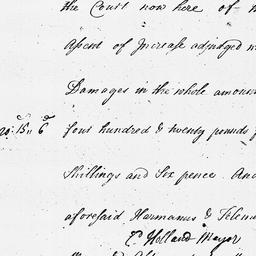 the Court now here of
Assent of Increase adjudged
Damages in the whole amoun
20: 15:: 6 four hundred & twenty pounds
Shillings and Six pence. And
aforesaid Harmanus &
E. Holland Mayor